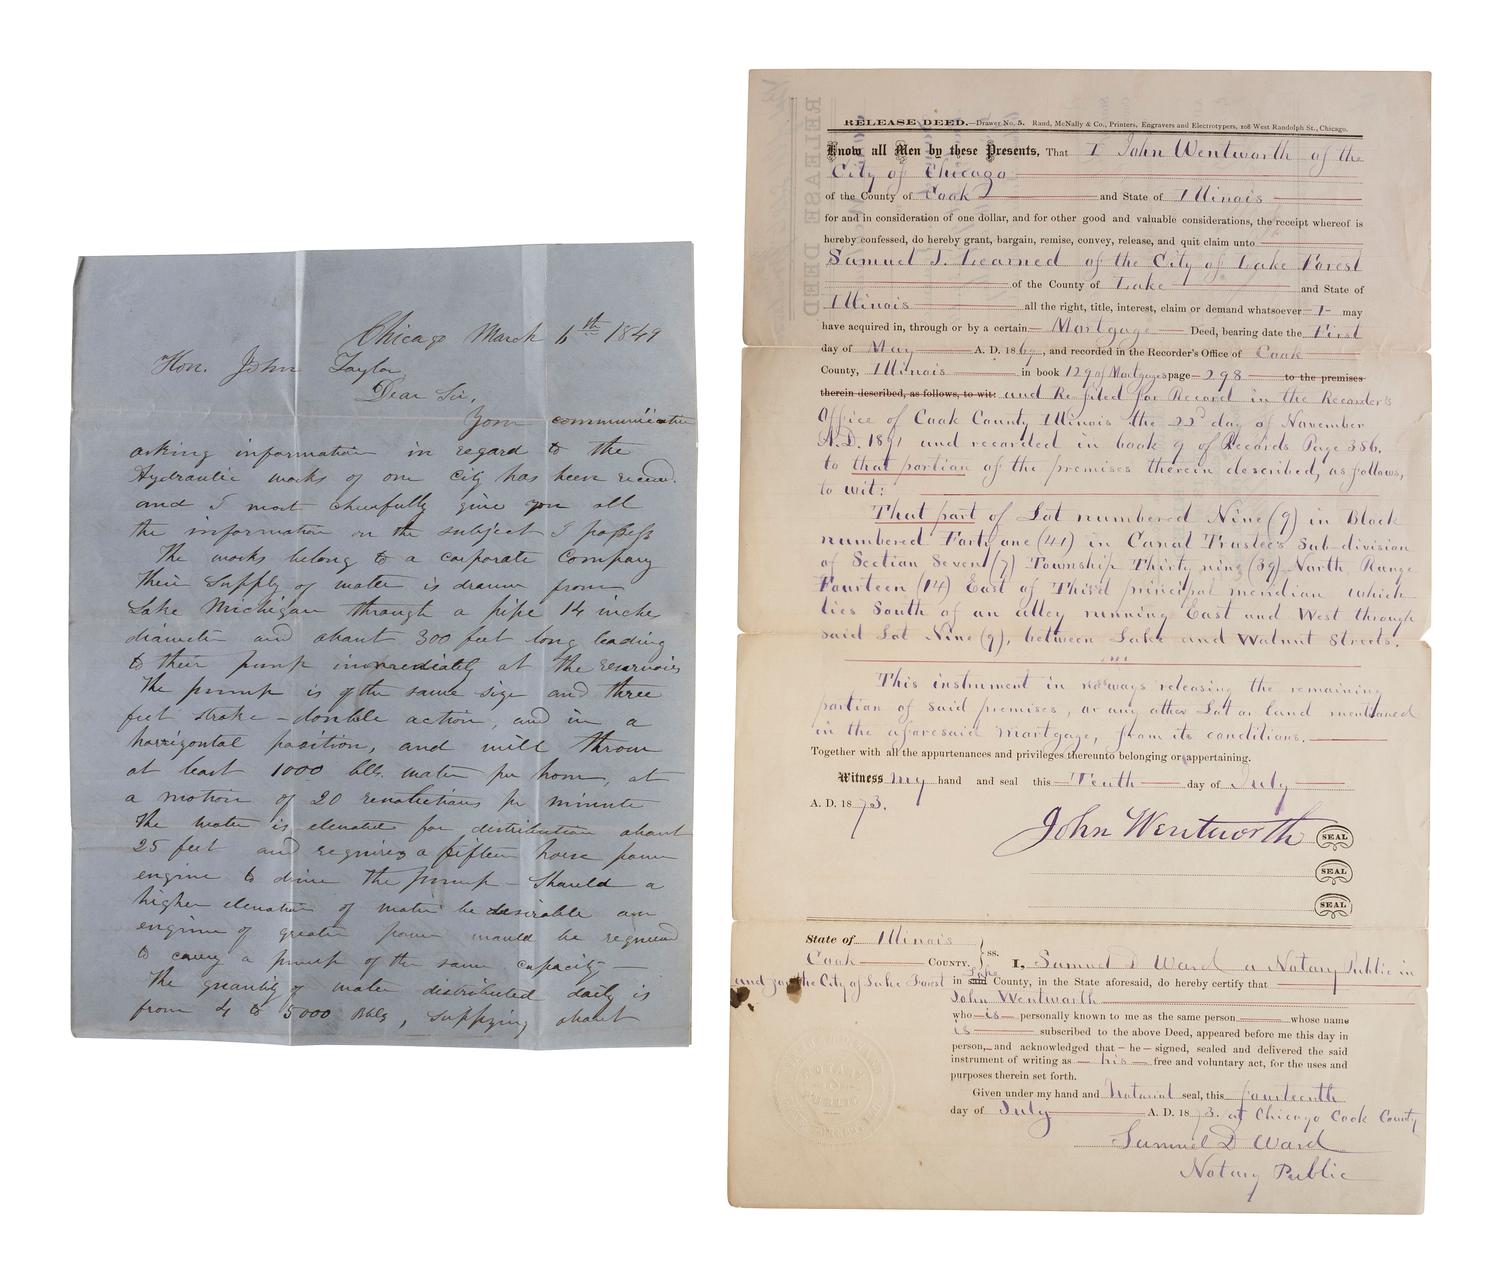 Chicago March 6th 1849
Hon. John Taylor,
Dear Sir,
Your communication
asking information in regard to the
Hydraulic works of our City has been recevd.
and I most cheerfully give you all
the information on the subject I possess
The works belong to a corporate Company
Their supply of water is drawn from
Lake Michigan through a pipe 14 inche
diameter and about 300 feet long leading
to their pump immediately at the reservoirs
The pump is of the same size and three
feet stroke – double action, and in a
horrizontal position, and will throw
at least 1000 bls. water per hour, at
a motion of 20 revolutions pr minute
The water is elevated for distribution about
25 feet and requires a fifteen horse power
engine to drive the pump – Should a
higher elevation of water be desirable an
engine of greater power would be required
to carry a pump of the same capacity –
The quantity of water distributed daily is
from 4 to 5000 Bbls, supplying about
RELEASE DEED
RELEASE DEED.—Drawer No. 5. Rand, McNally & Co., Printers, Engravers and Electrotypers, 108 West Randolph St., Chicago.
Know all Men by these Presents, That I John Wentworth of the
City of Chicago
of the County of Cook and State of Illinois
for and in consideration of one dollar, and for other good and valuable considerations, the receipt whereof is
hereby confessed, do hereby grant, bargain, remise, convey, release, and quit claim unto
Samuel J. Learned of the City of Lake Forest
of the County of Lake and State of
Illinois all the right, title, interest, claim or demand whatsoever I may
have acquired in, through or by a certain Mortgage Deed, bearing date the First
day of May A. D. 1869, and recorded in the Recorder's Office of Cook
County, Illinois in book 129 of Mortgages page 298 to the premises
therein described, as follows, to wit: and Re-filed for Record in the Recorder's
Office of Cook County Illinois the 22d day of November
A.D. 1871 and recorded in book 9 of Records Page 386.
to that portion of the premises therein described, as follows,
to wit:
That part of Lot numbered Nine (9) in Block
numbered Forty one (41) in Canal Trustee's Sub-division
of Section Seven (7) Township Thirty nine (39) North, Range
Fourteen (14) East of Third principal meridian which
lies South of an alley running East and West through
said Lot Nine (9), between Lake and Walnut Streets.
This instrument in no ways releasing the remaining
portion of said premises, or any other Lot or land mentioned
in the aforesaid Mortgage, from its conditions.
Together with all the appurtenances and privileges thereunto belonging or appertaining.
Witness my hand and seal this Tenth day of July
A. D. 1873.
John Wentworth SEAL
SEAL
SEAL
State of Illinois
Cook COUNTY. } ss. I, Samuel D Ward a Notary Public in
and for the City of Lake Forest in said Lake County, in the State aforesaid, do hereby certify that
John Wentworth
who is personally known to me as the same person whose name
is subscribed to the above Deed, appeared before me this day in
person, and acknowledged that he signed, sealed and delivered the said
instrument of writing as his free and voluntary act, for the uses and
purposes therein set forth.
Given under my hand and Notarial seal, this fourteenth
day of July A. D. 1873. at Chicago Cook County
Samuel D Ward
Notary Public
NOTARY
PUBLIC